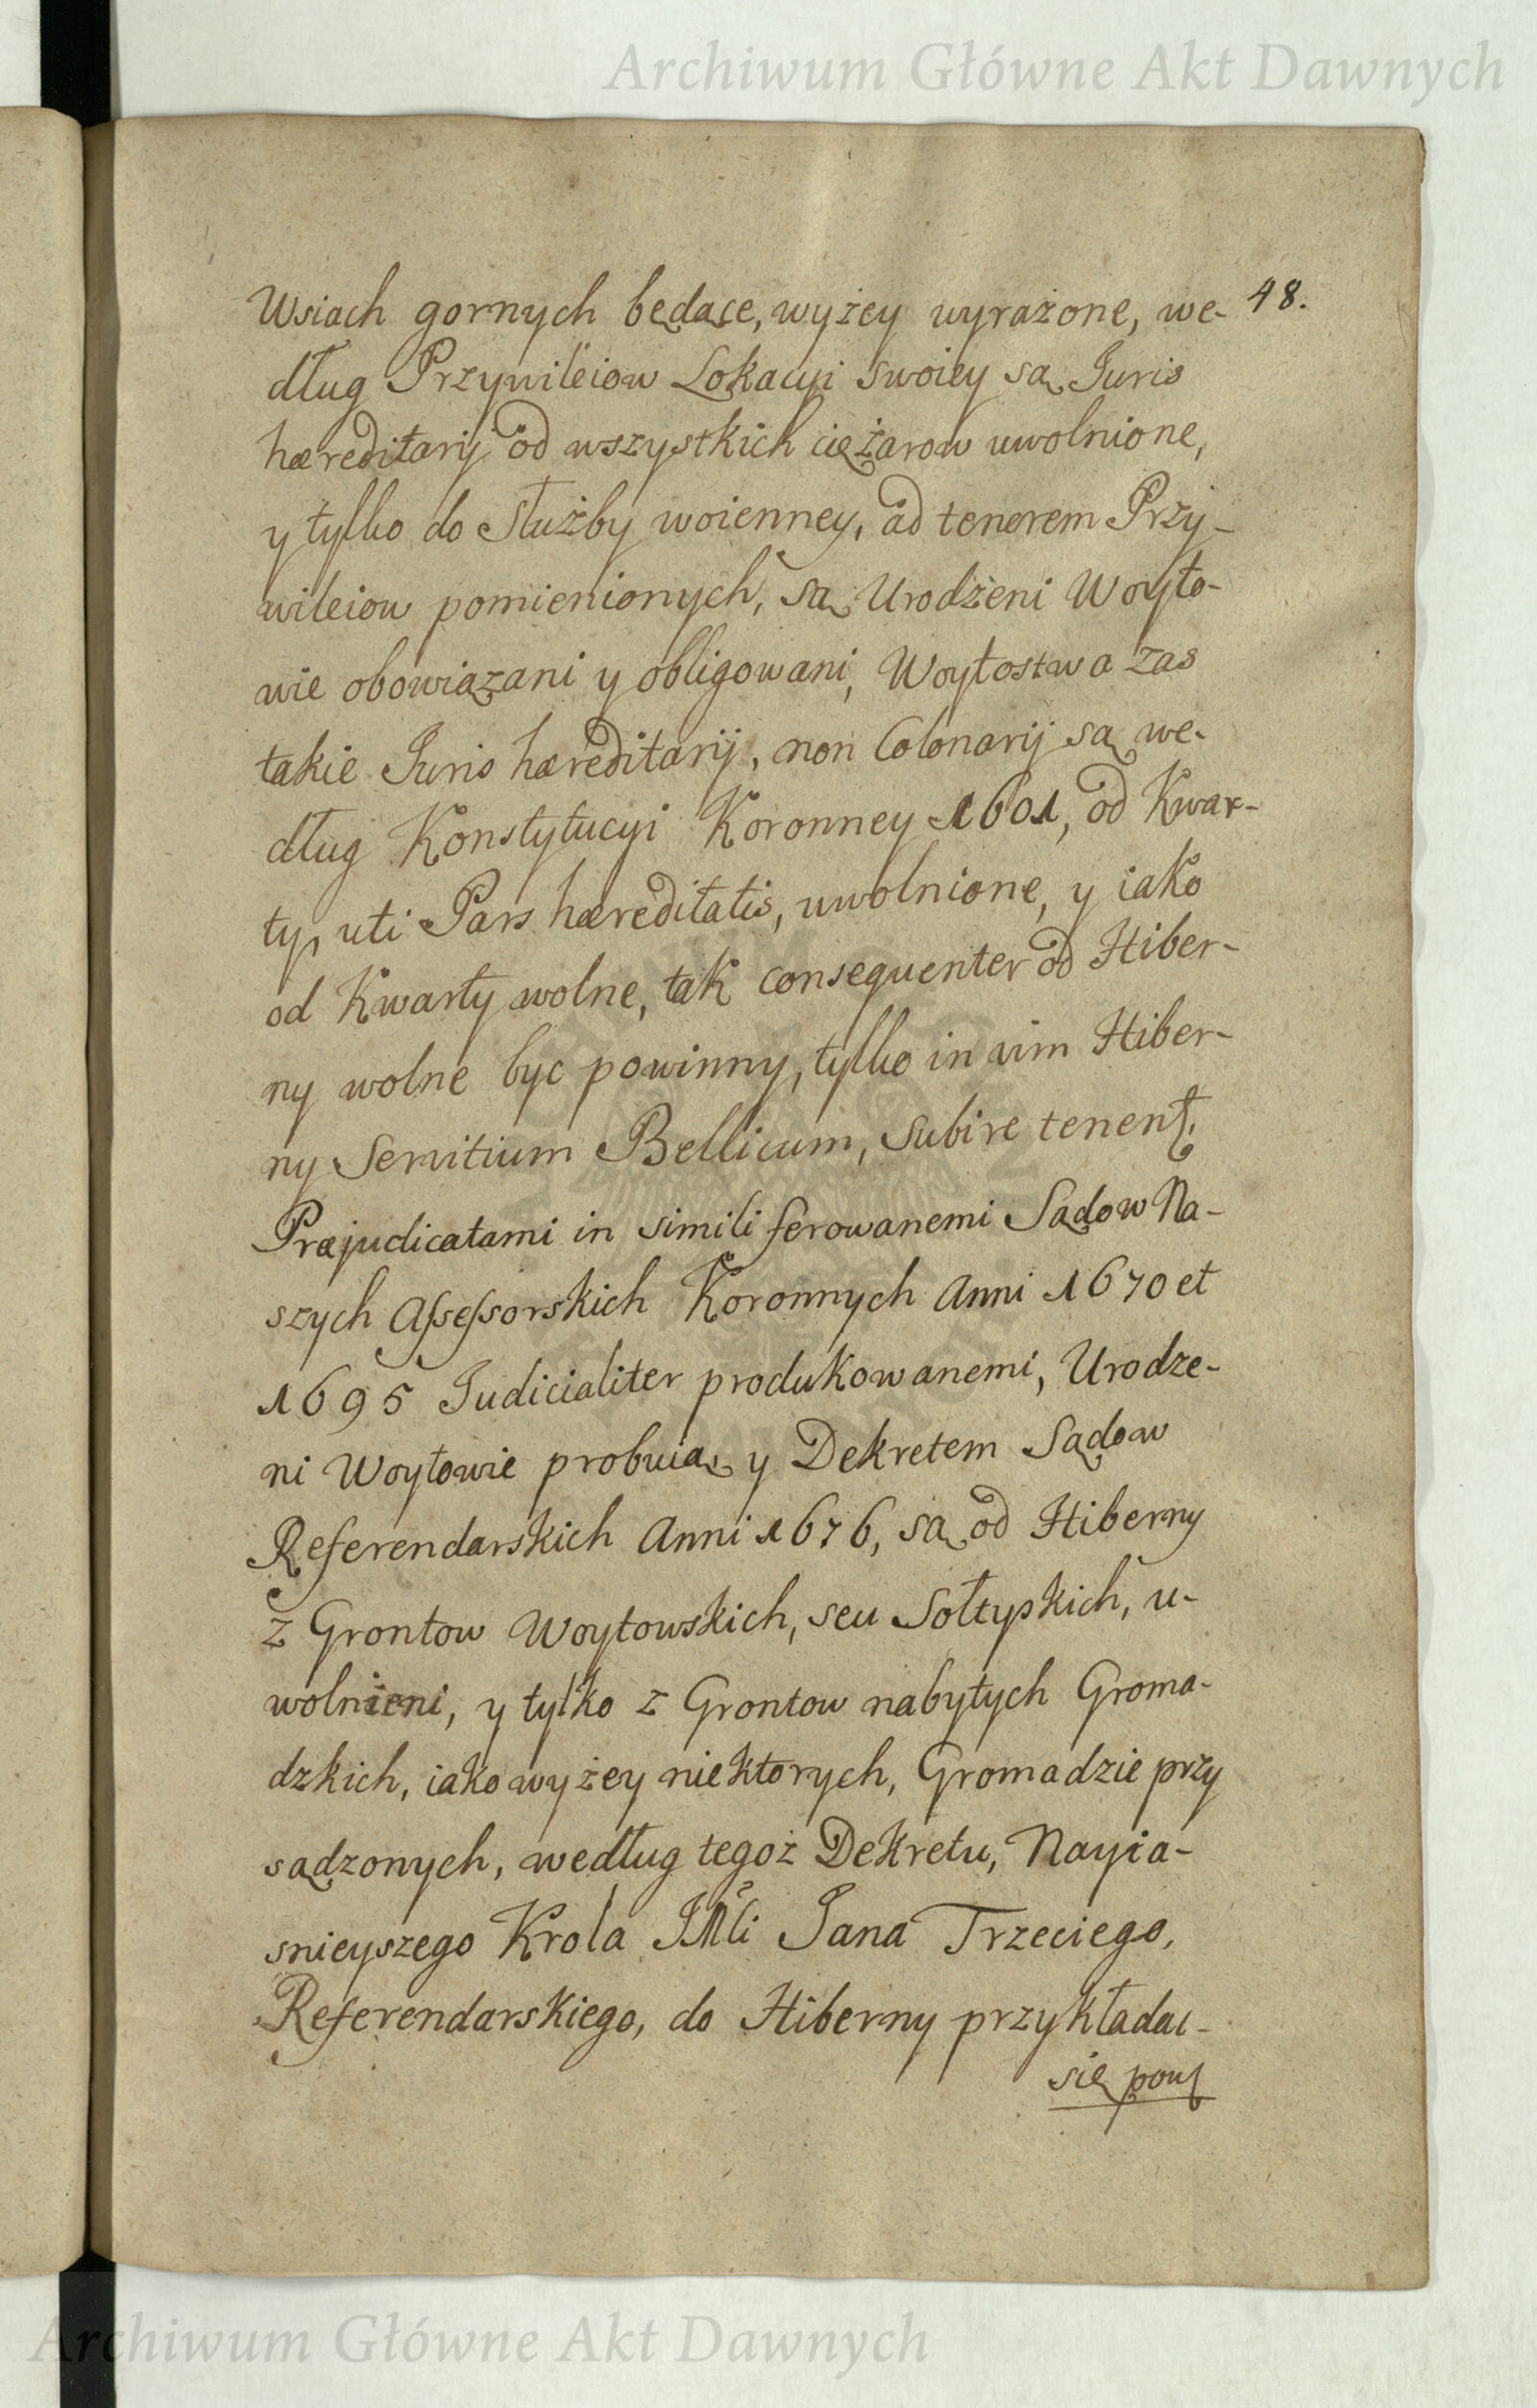 Archiwum Główne Akt Dawnych
48.
Wsiach gornych będące, wyżey wyrażone, we-
dług Przywileiow Lokacyi swoiey są Juris
hæreditarij od wszystkich ciężarow uwolnione,
y tylko do Służby woienney, ad tenorem Przy-
wileiow pomienionych, są Urodzeni Woyto-
wie obowiązani y obligowani, Woytostwa zas
takie Juris hæreditarij, non Colonarij są we-
dług Konstytucyi Koronney 1601, od Kwar-
ty, uti Pars hæreditatis, uwolnione, y iako
od Kwarty wolne, tak consequenter od Hiber-
ny wolne byc powinny, tylko in vim Hiber-
ny Servitium Bellicum, subire tenent.
Præjudicatami in simili ferowanemi Sądow Na-
szych Assessorskich Koronnych Anni 1670 et
1695 Judicialiter produkowanemi, Urodze-
ni Woytowie probuią, y Dekretem Sądow
Referendarskich Anni 1676, są od Hiberny
z Grontow Woytowskich, seu Sołtyskich, u-
wolnieni, y tylko z Grontow nabytych Groma-
dzkich, iako wyżey niektorych, Gromadzie przy
sądzonych, według tegoż Dekretu, Nayia-
snieyszego Krola JMci Jana Trzeciego,
Referendarskiego, do Hiberny przykładac
się pow
Archiwum Główne Akt Dawnych